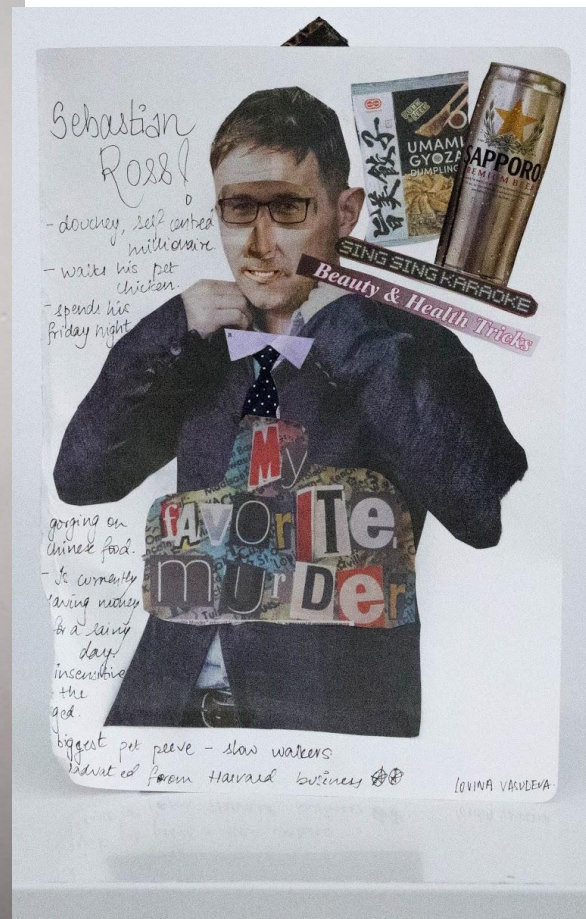 Sebastian
Ross!
- douchey, self centred
millionaire.
- walks his pet
chicken.
- spends his
friday night
gorging on
chinese food.
- Is currently
saving money
for a rainy
day.
insensitive
the
aged.
biggest pet peeve - slow walkers
from Harvard business
旨美餃子
UMAMI
GYOZA
DUMPLING
SAPPORO
PREMIUM BEER
SING SING KARAOKE
Beauty & Health Tricks
My
fAVorITe
murDer
LOVINA VASUDEVA